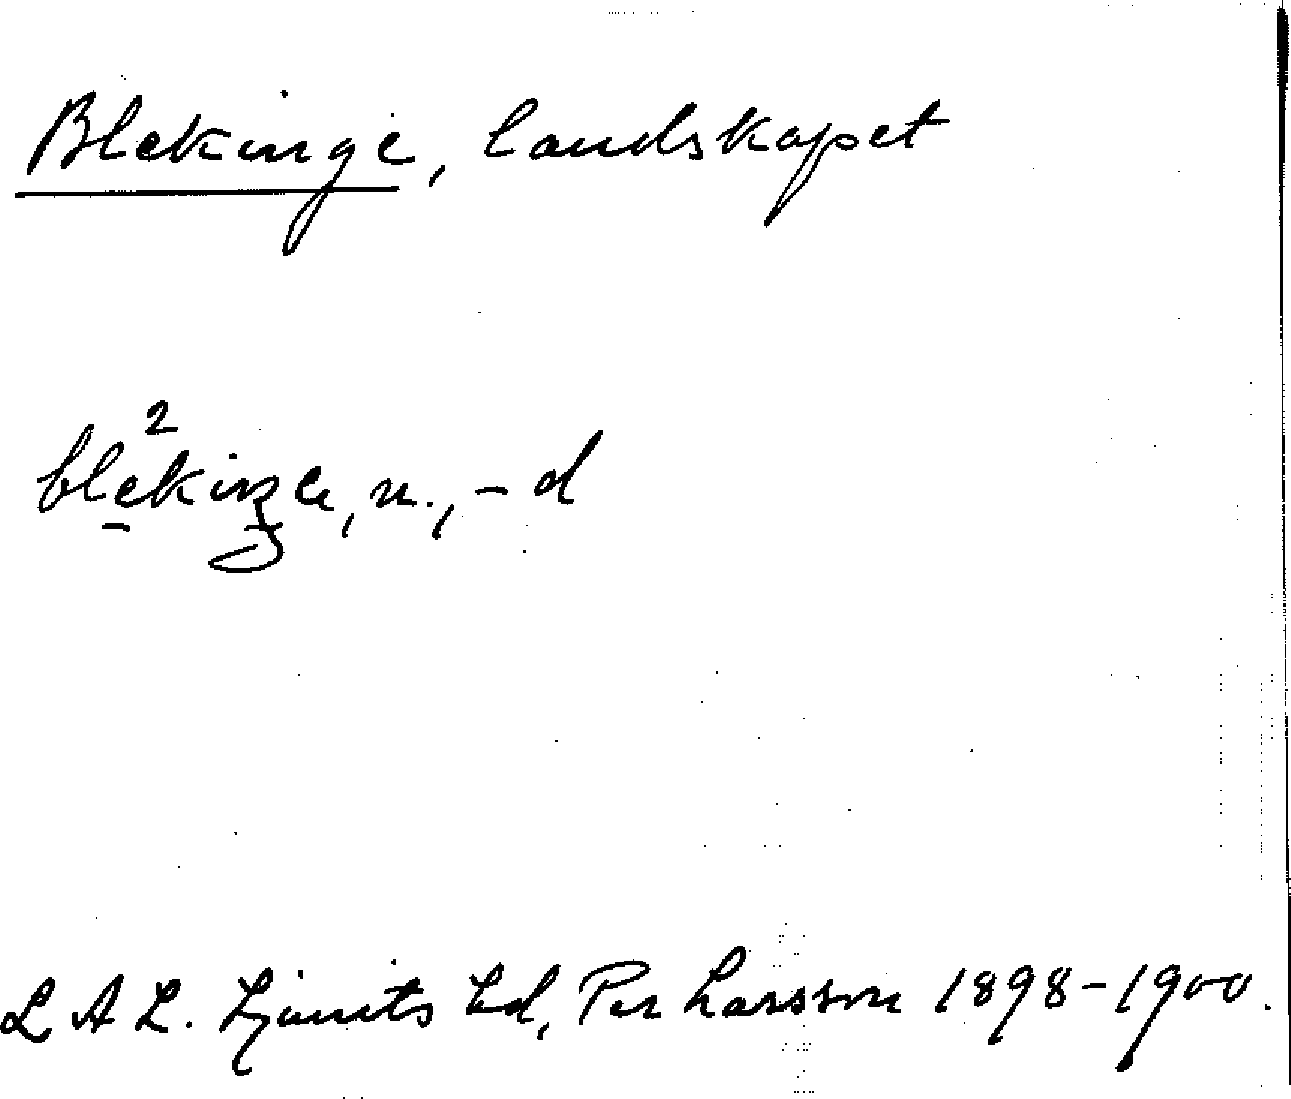 Blekinge, landskapet
2
blekinge, n., - d
L A L. Ljunits hd, Per Larsson 1898-1900.